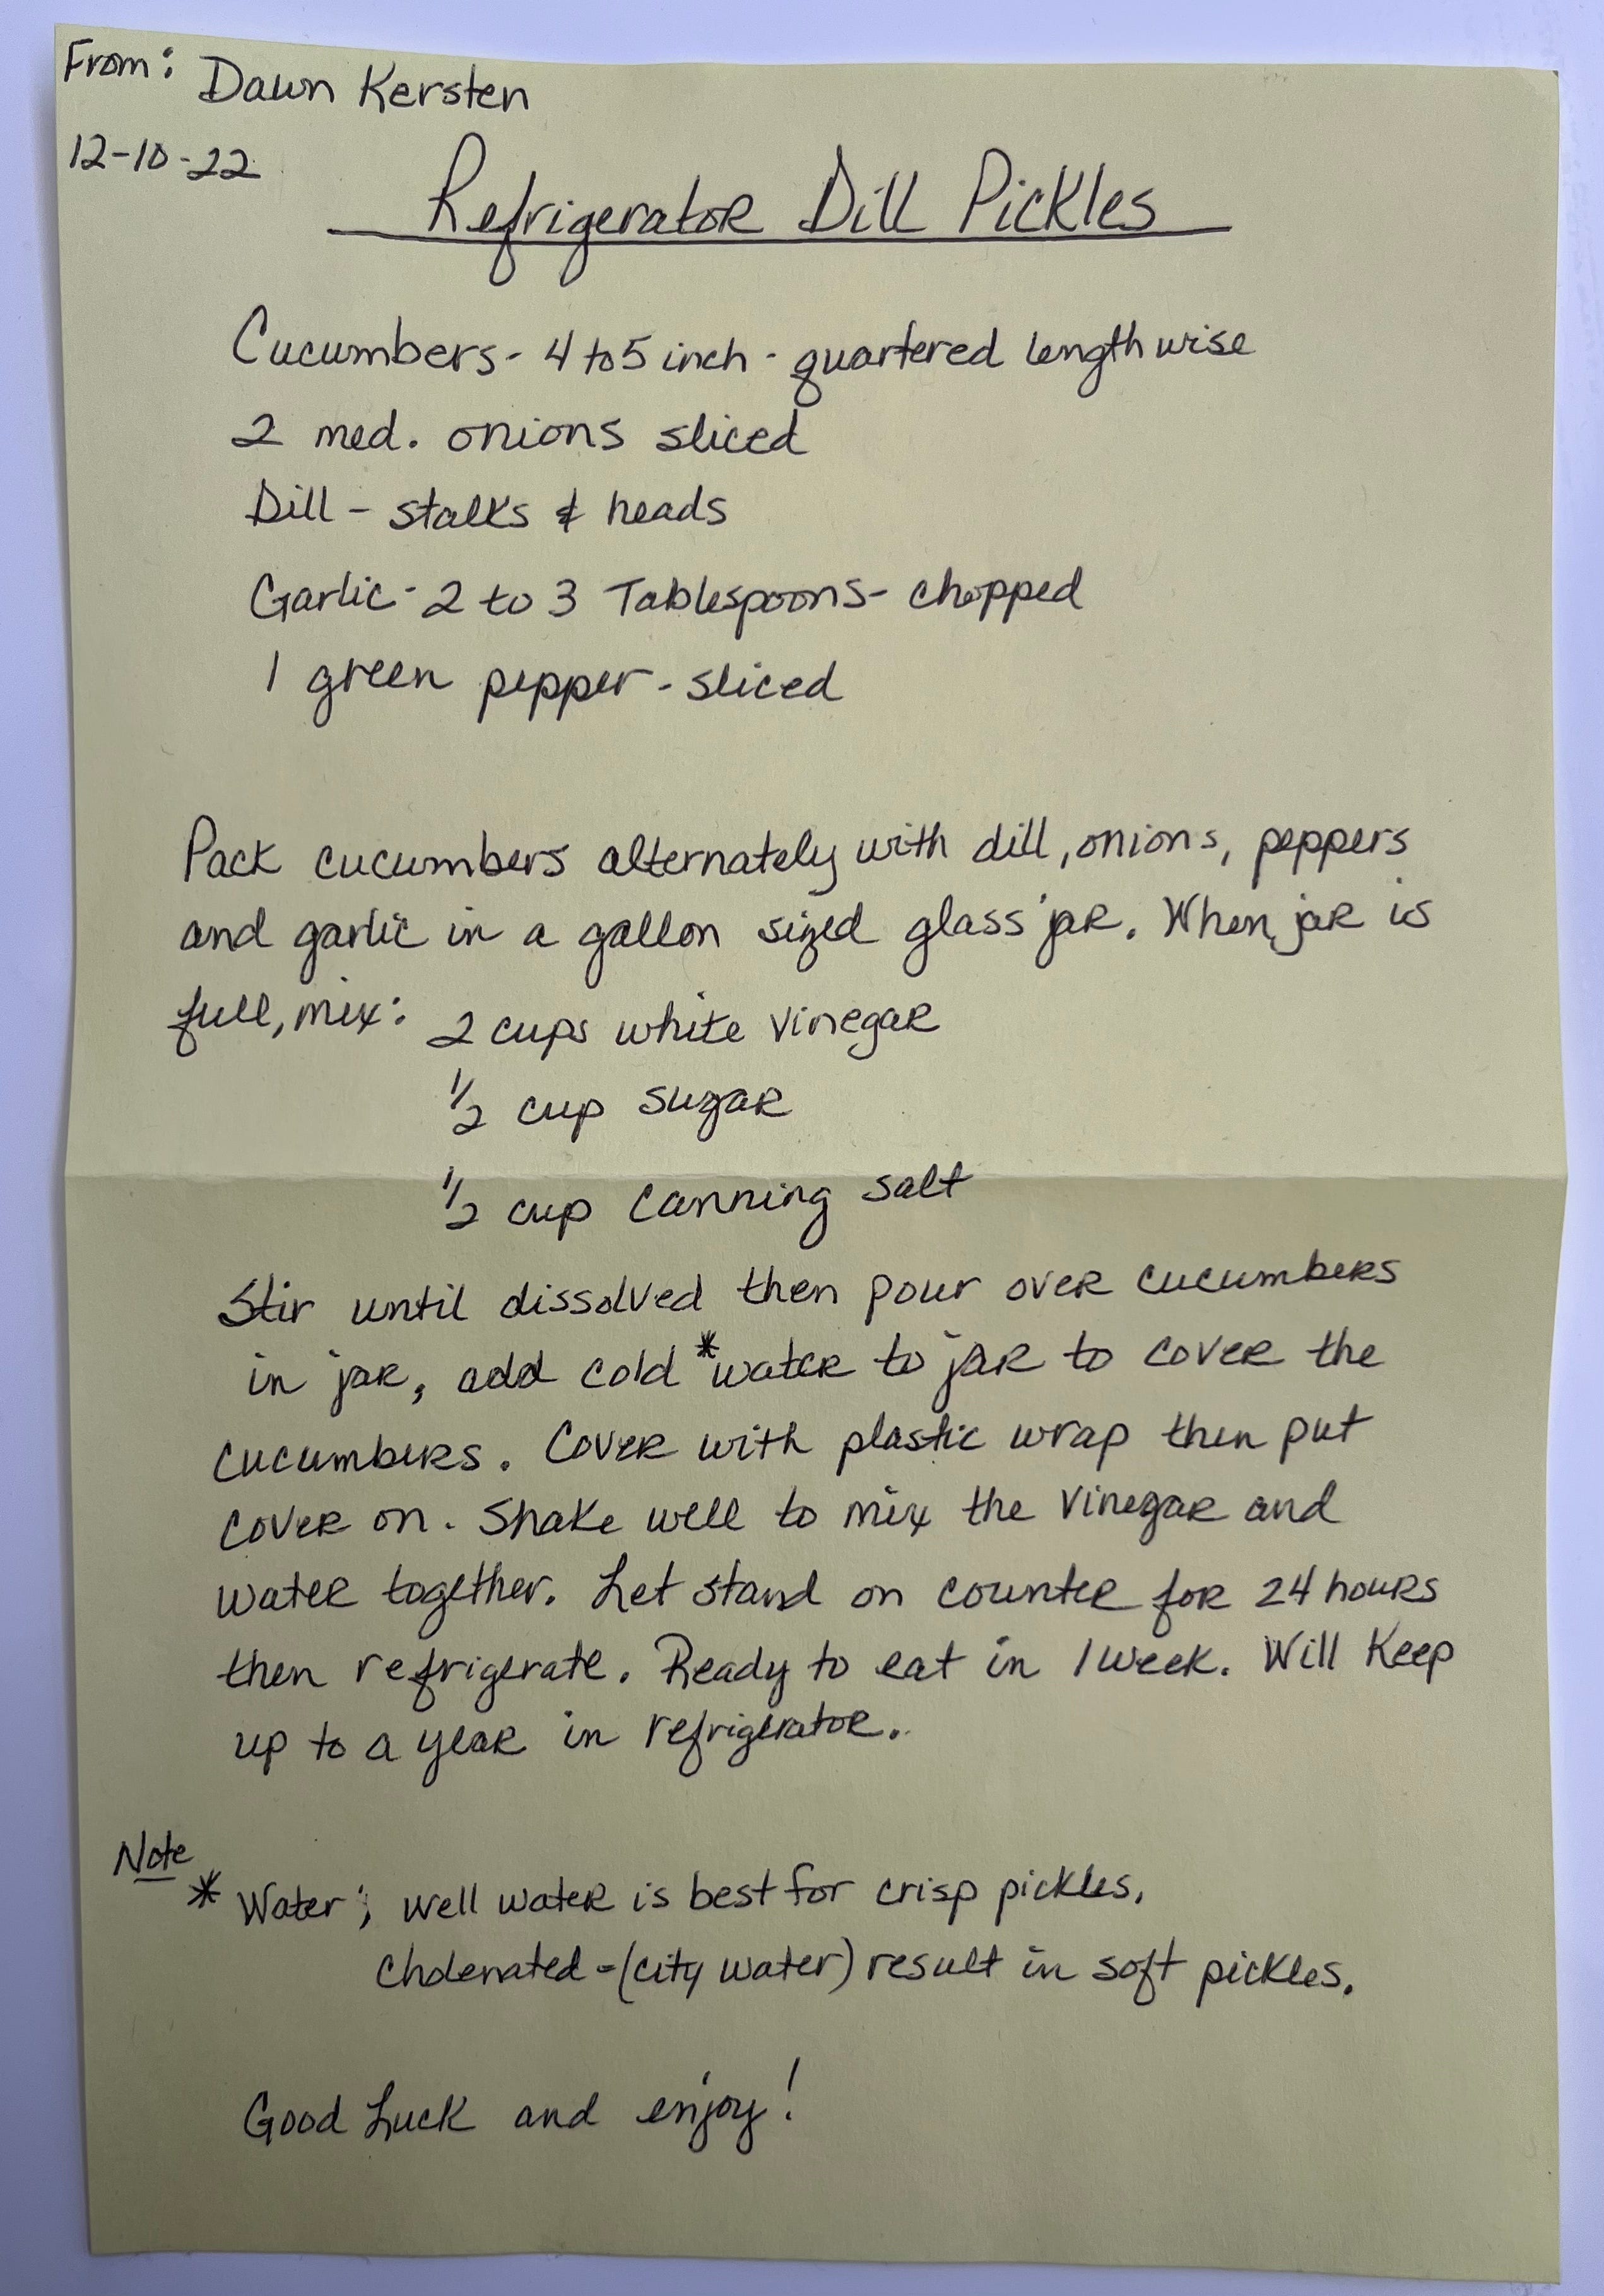 From: Dawn Kersten
12-10-22
Refrigerator Dill Pickles
Cucumbers - 4 to 5 inch - quartered lengthwise
2 med. onions sliced
Dill - stalks & heads
Garlic - 2 to 3 Tablespoons - chopped
1 green pepper - sliced
Pack cucumbers alternately with dill, onions, peppers
and garlic in a gallon sized glass jar. When jar is
full, mix: 2 cups white vinegar
1/2 cup sugar
1/2 cup canning salt
Stir until dissolved then pour over cucumbers
in jar, add cold *water to jar to cover the
cucumbers. Cover with plastic wrap then put
cover on. Shake well to mix the vinegar and
water together. Let stand on counter for 24 hours
then refrigerate. Ready to eat in 1 week. Will Keep
up to a year in refrigerator.
Note
* Water; well water is best for crisp pickles.
Cholenated - (city water) result in soft pickles.
Good Luck and enjoy!